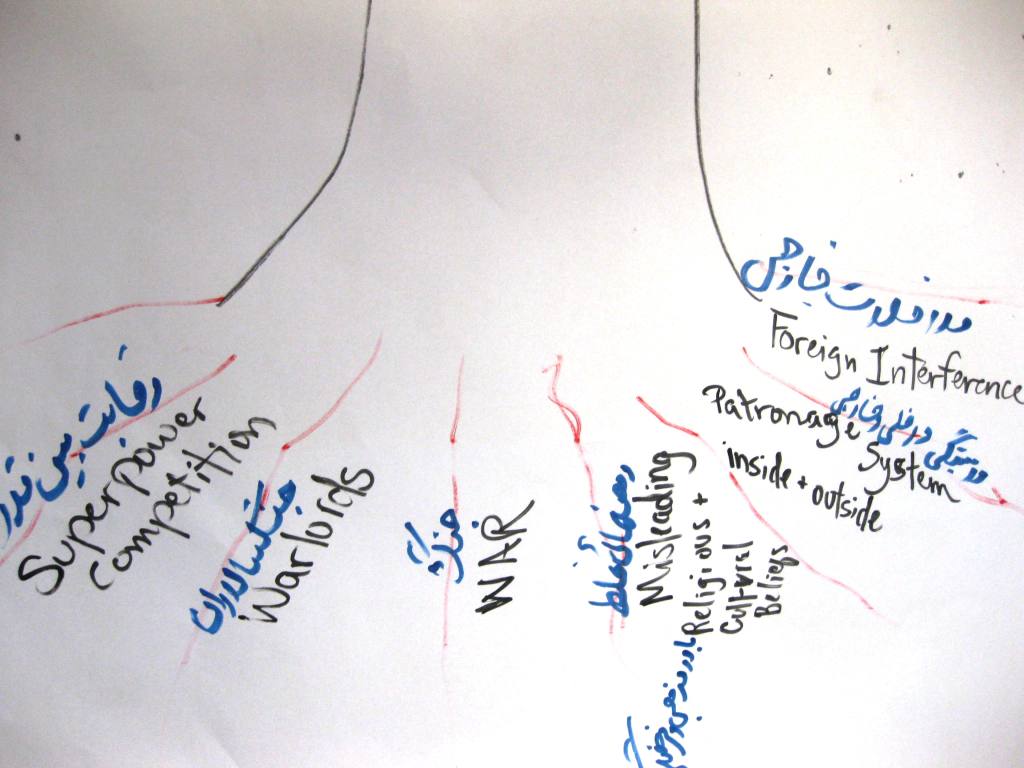 رقابت بین قدر
Superpower
competition
جنگسالاران
Warlords
جنگ
WAR
Misleading
Religious +
Cultural
Beliefs
مداخلات خارجی
Foreign Interference
وابستگی داخلی و خارجی
Patronage System
inside + outside